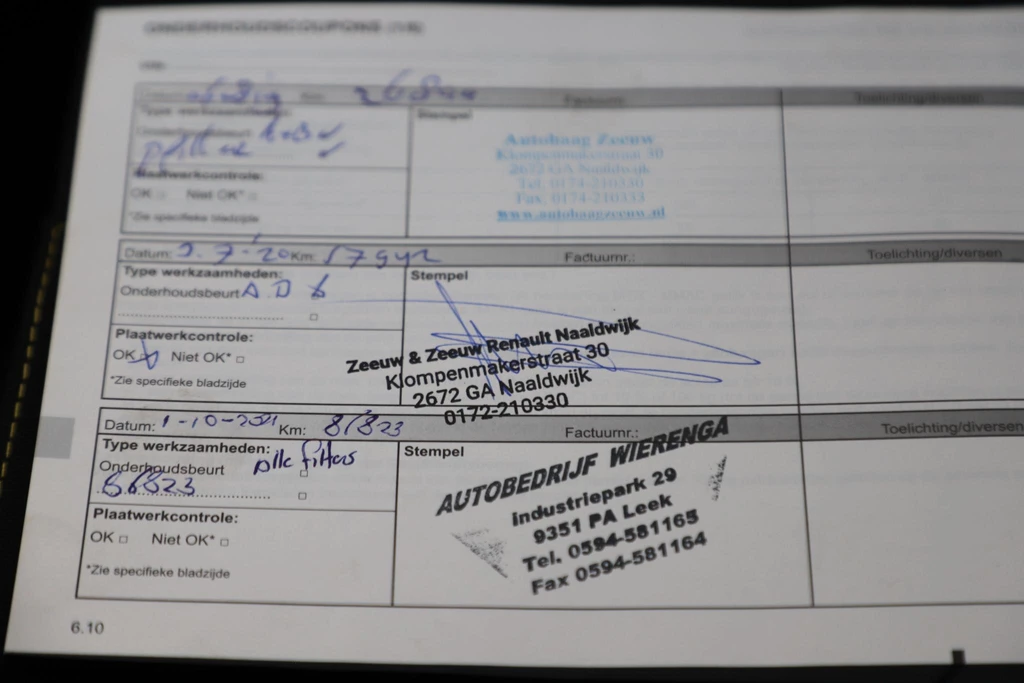 ONDERHOUDSCOUPONS
Factuurnr.
Toelichting/diversen
Type werkzaamheden:
Stempel
Onderhoudsbeurt
Autohaag Zeeuw
Klompenmakerstraat 30
2672 GA Naaldwijk
Tel: 0174-210330
Fax: 0174-210333
www.autohaagzeeuw.nl
Plaatwerkcontrole:
OK □ Niet OK* □
*Zie specifieke bladzijde
Datum: Km: Factuurnr.: Toelichting/diversen
Type werkzaamheden:
Stempel
Onderhoudsbeurt A D
Plaatwerkcontrole:
OK Niet OK* □
*Zie specifieke bladzijde
Zeeuw & Zeeuw Renault Naaldwijk
Klompenmakerstraat 30
2672 GA Naaldwijk
0172-210330
Datum: 1-10-2021 Km: 81823 Factuurnr.: Toelichting/diversen
Type werkzaamheden:
Stempel
Onderhoudsbeurt Alle filters
Plaatwerkcontrole:
OK □ Niet OK* □
*Zie specifieke bladzijde
AUTOBEDRIJF WIERENGA
Industriepark 29
9351 PA Leek
Tel. 0594-581165
Fax 0594-581164
6.10